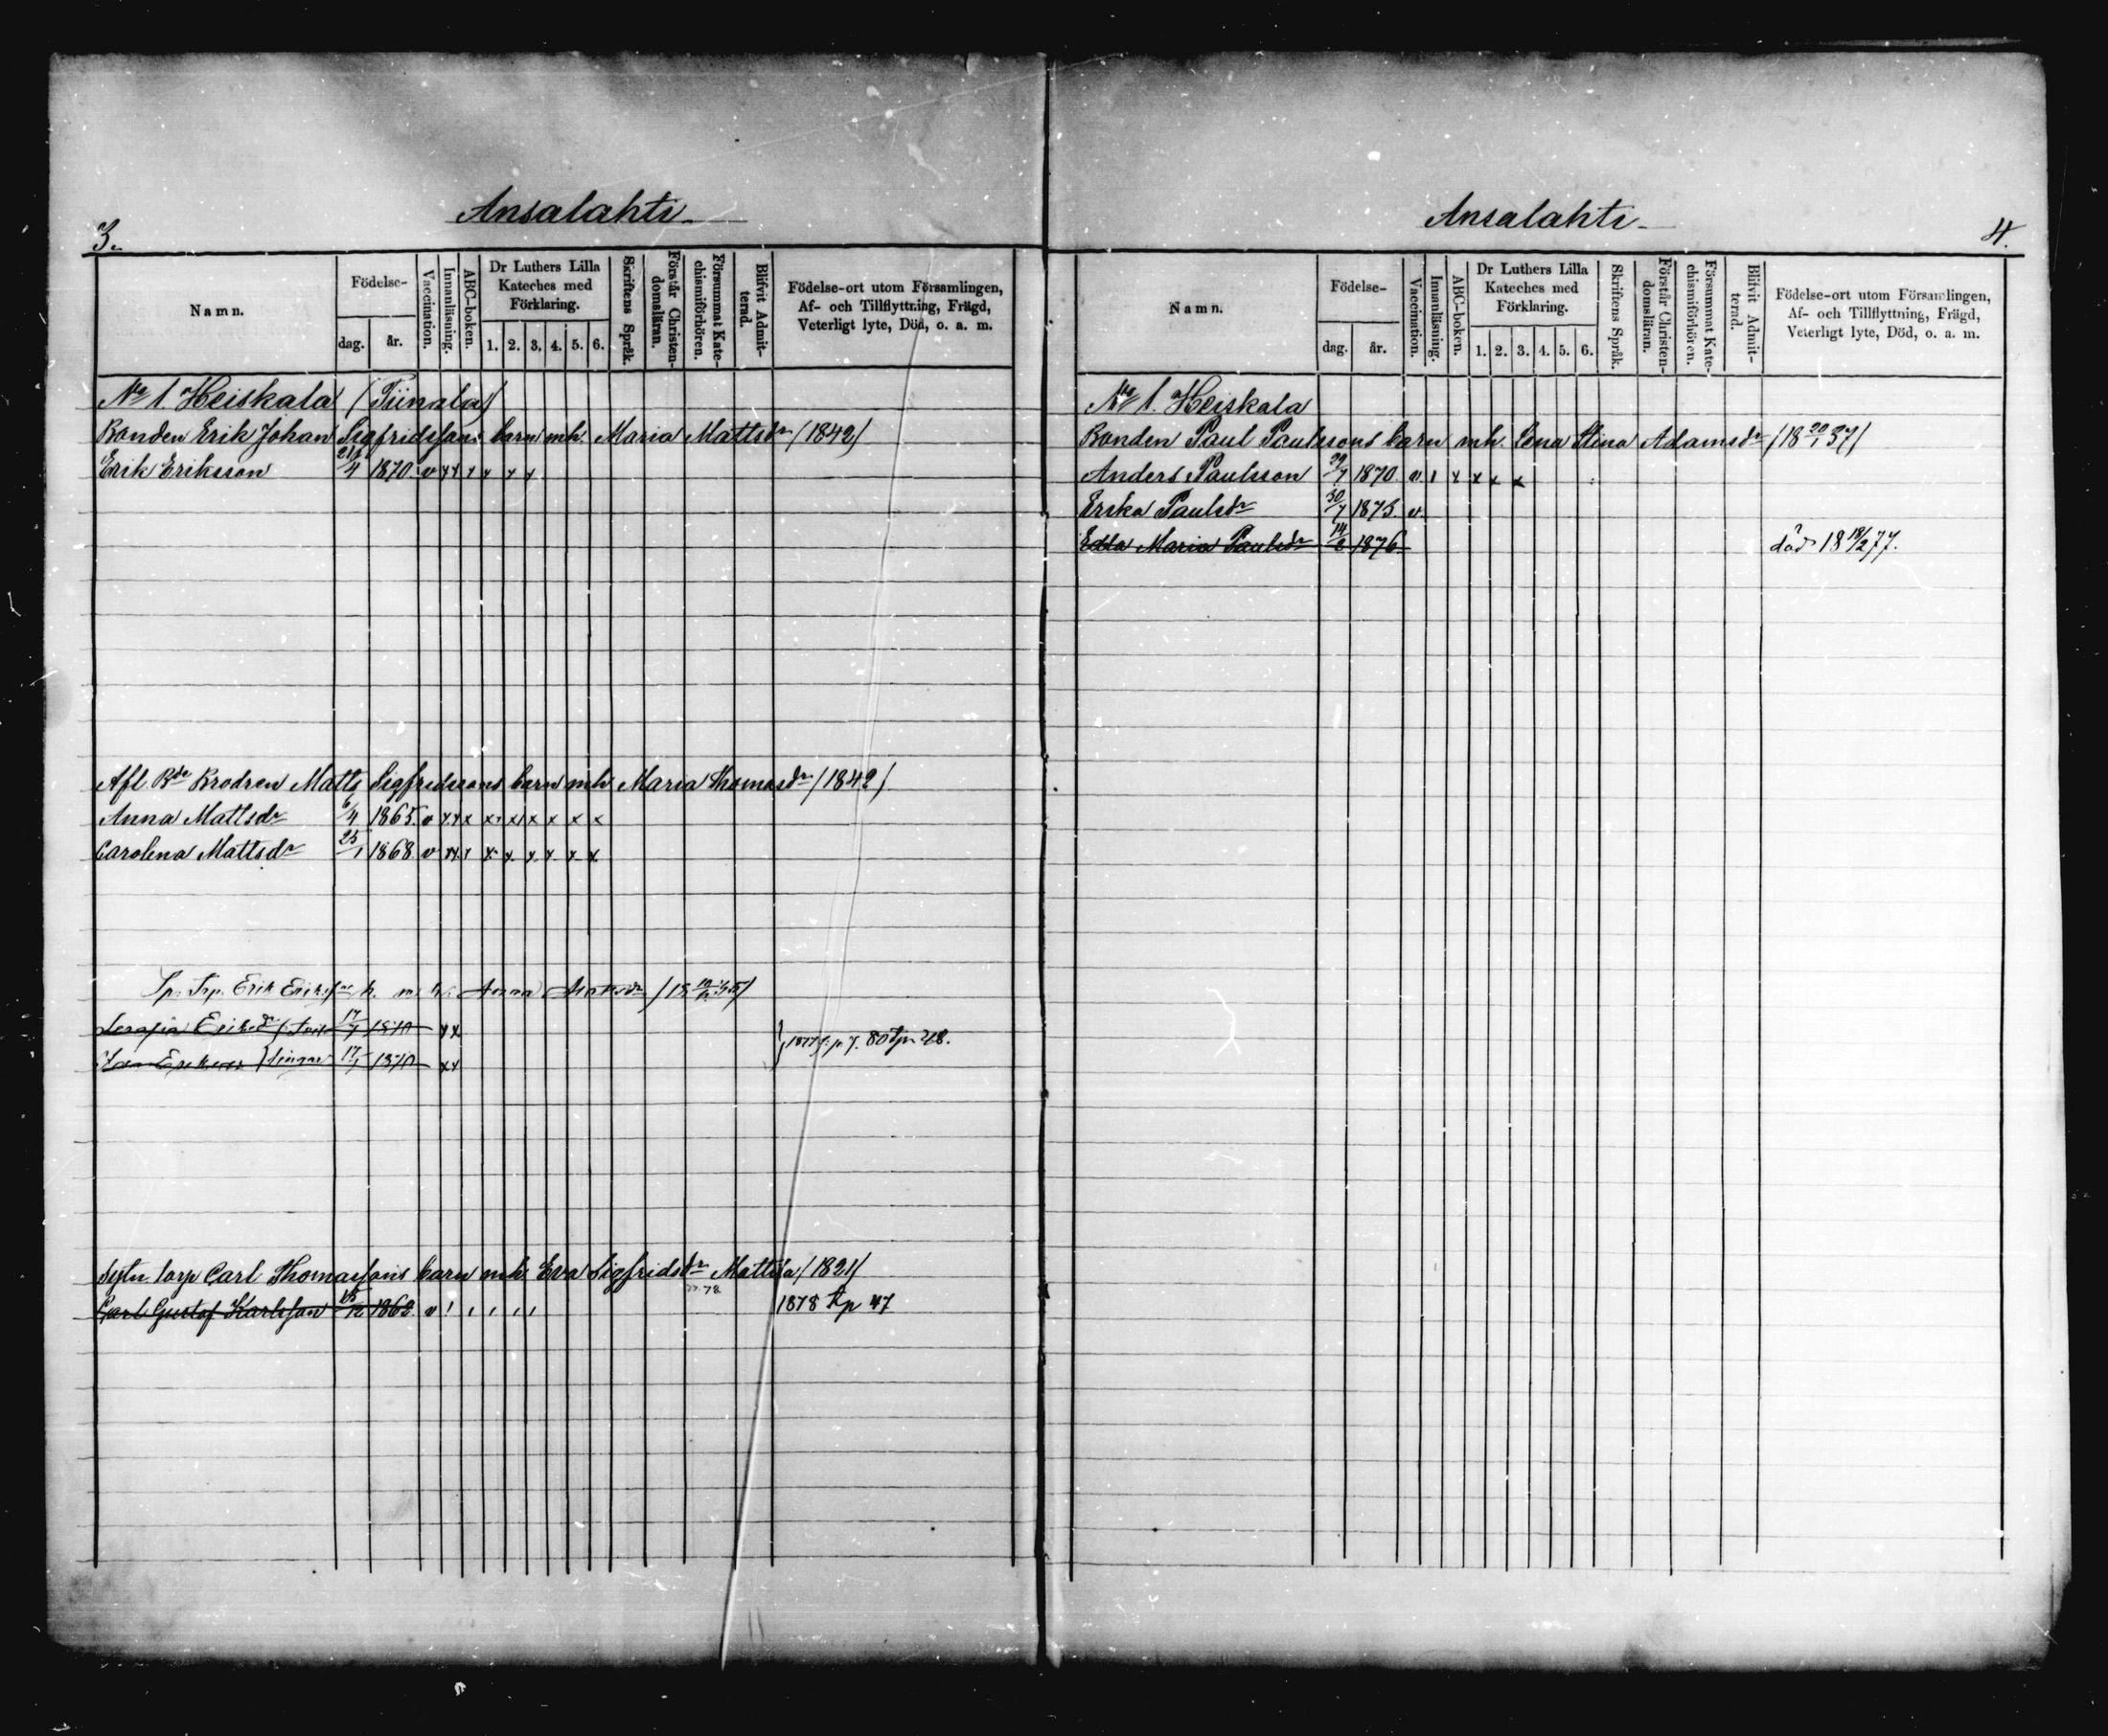 3.
Ansalahti
Namn.
Födelse-
dag.
år.
Vaccination.
Innanläsning.
ABC-boken.
Dr Luthers Lilla
Kateches med
Förklaring.
1. 2. 3. 4. 5. 6.
Skriftens Språk.
Förstår Christen-
domsläran.
Försummat Kate-
chismiförhören.
Blifvit Admit-
terad.
Födelse-ort utom Församlingen,
Af- och Tillflyttning, Frägd,
Veterligt lyte, Död, o. a. m.
No 1. Heiskala (Tiinala)
Bonden Erik Johan Sigfridssons barn mh. Maria Mattsdr (1842)
Erik Eriksson 21/4 1870. v x x x x x x
Afl. Bdn Brodren Matts Sigfridssons barn mh Maria Thomasdr (1842)
Anna Mattsdr 6/4 1865. v x x x x x x x x x
Carolina Mattsdr 25/1 1868 v x x x x x x x x x
Erik Erikss Anna
Serafia Eriksdr 17/1 1870 x x
17/1 1870 x x
80
torp Carl Thomassons barn mh Eva Sigfridsdr Mattila (1821)
Carl Gustaf Karlsson 1862. v
1878 47
Ansalahti
4.
Namn.
Födelse-
dag.
år.
Vaccination.
Innanläsning.
ABC-boken.
Dr Luthers Lilla
Kateches med
Förklaring.
1. 2. 3. 4. 5. 6.
Skriftens Språk.
Förstår Christen-
domsläran.
Försummat Kate-
chismiförhören.
Blifvit Admit-
terad.
Födelse-ort utom Församlingen,
Af- och Tillflyttning, Frägd,
Veterligt lyte, Död, o. a. m.
No 1. Heiskala
Bonden Paul Paulssons barn mh. Lena Stina Adamsdr (18 20/1 37)
Anders Paulsson 29/7 1870 v x x x x
Erika Paulsdr 30/7 1873. v
Edla Maria Paulsdr 14/2 1876
död 18 18/2 77.